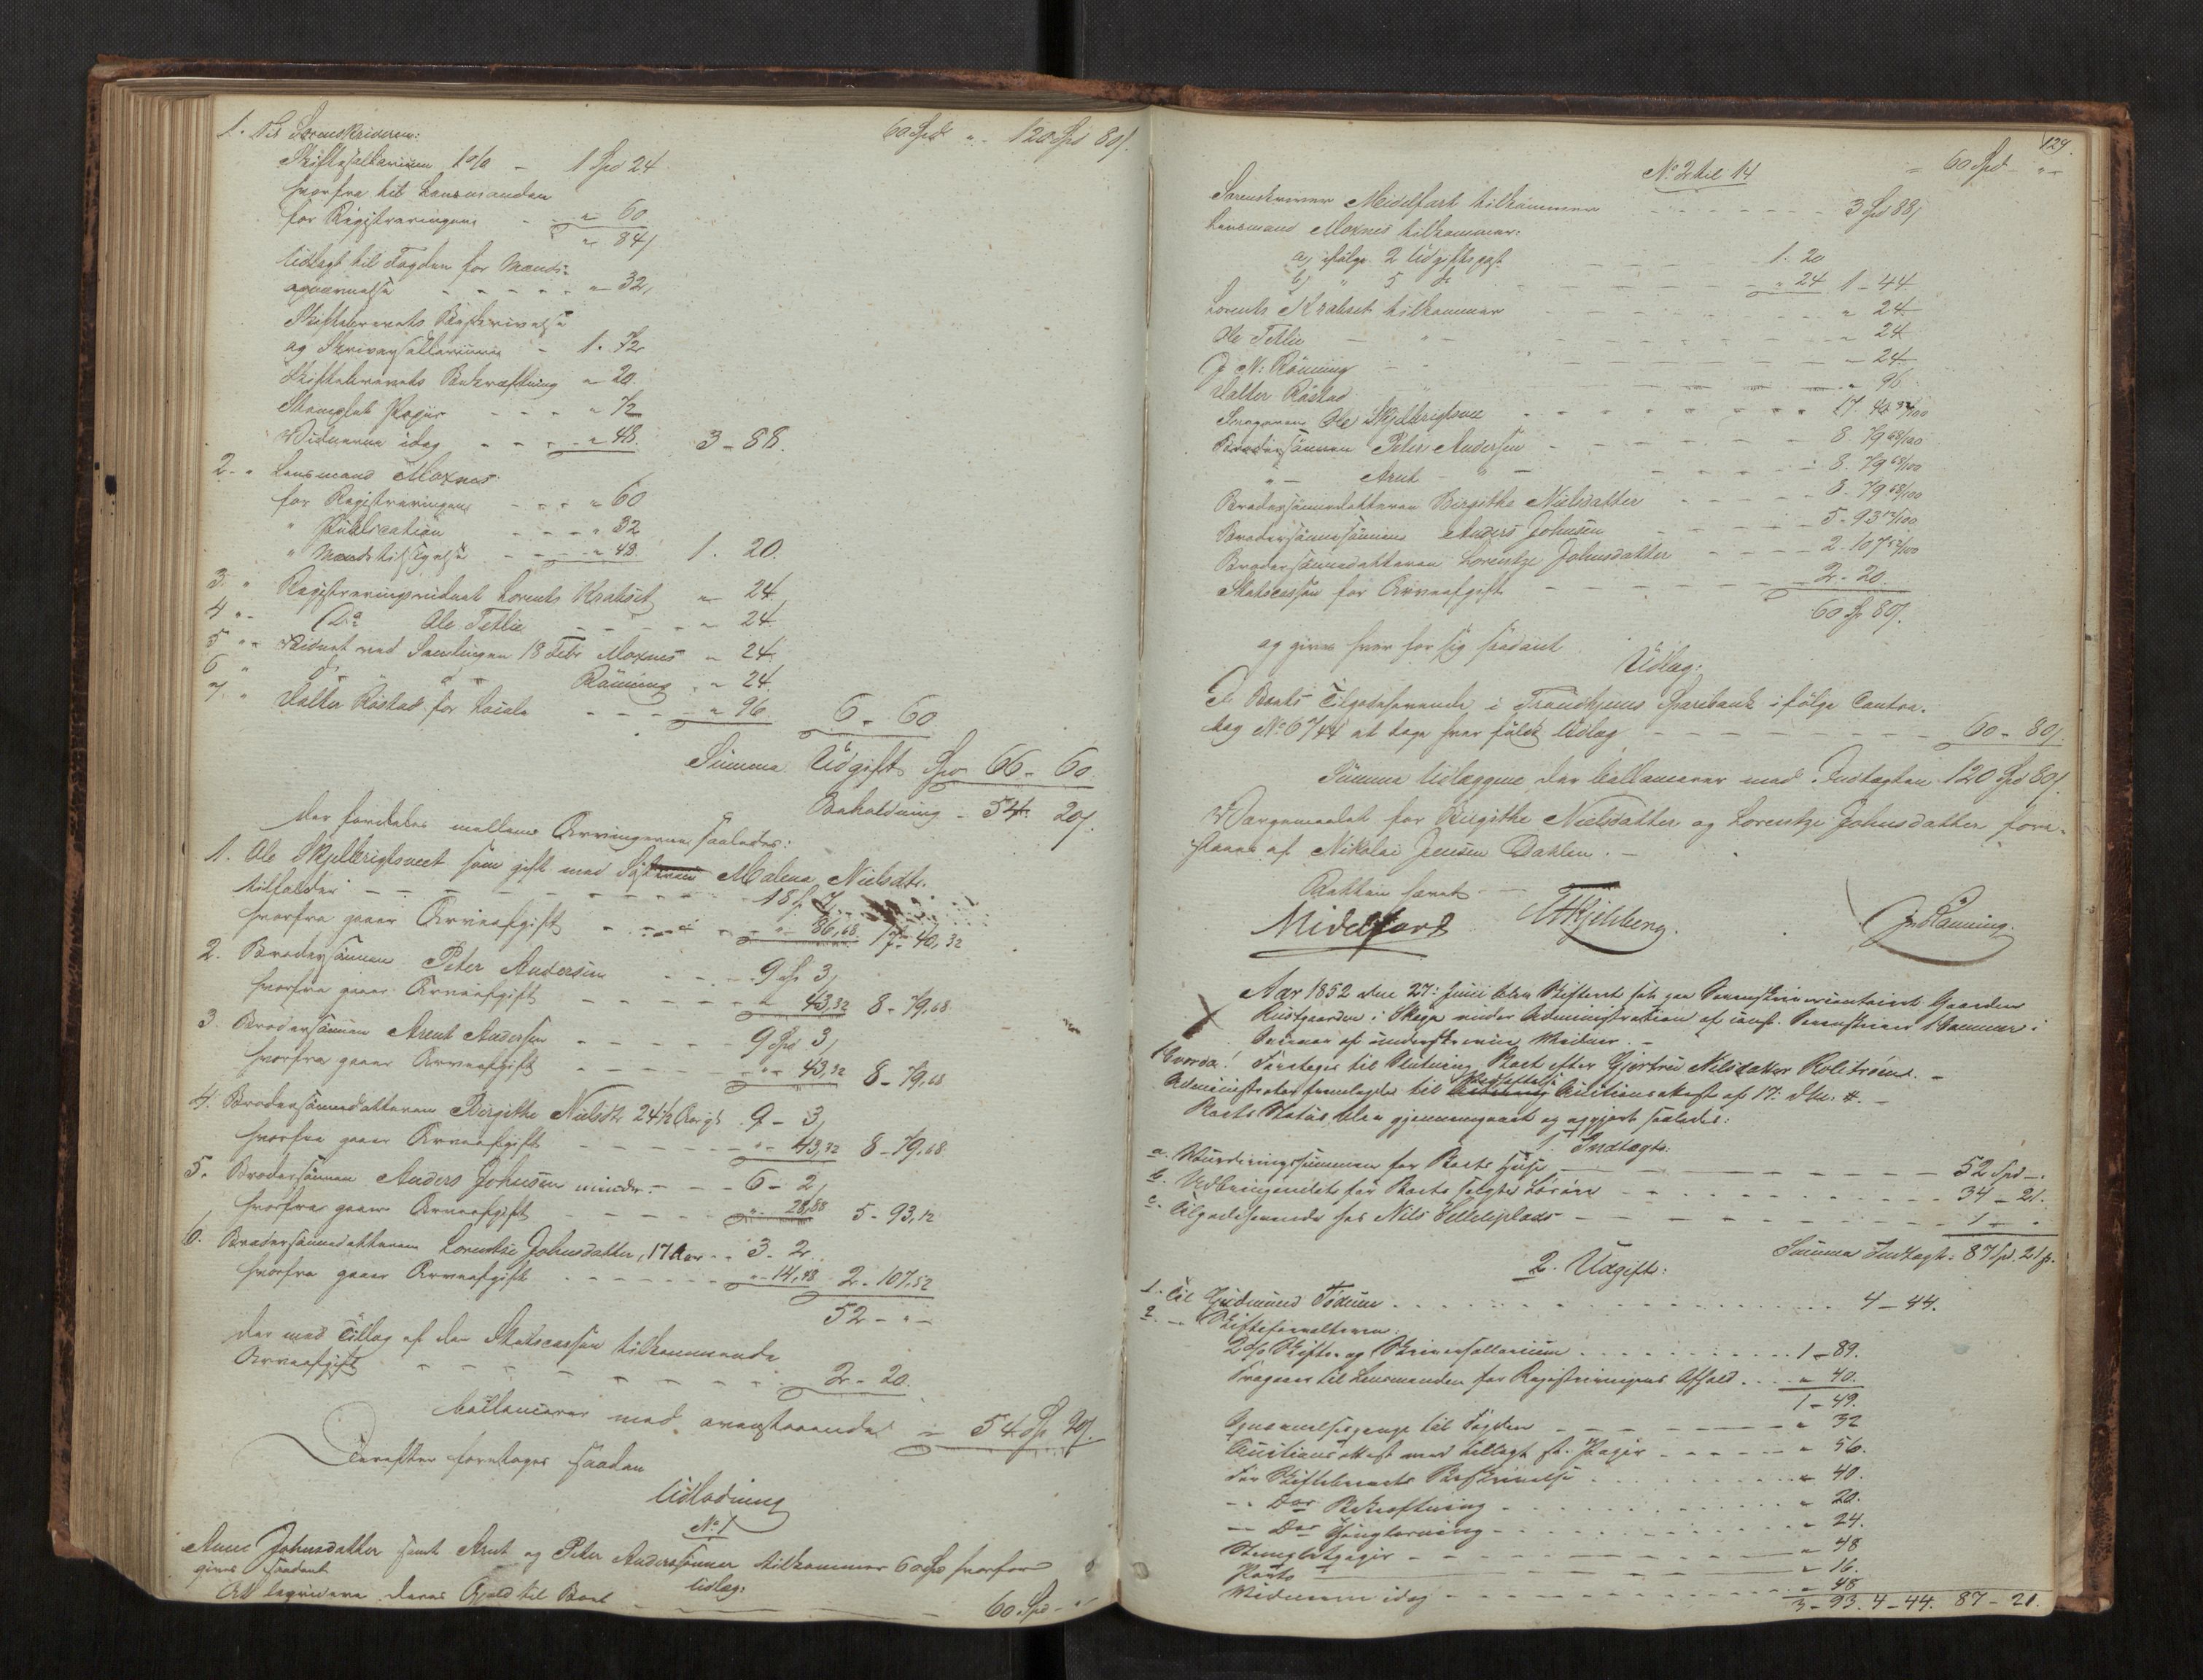 60 Spd " - 120 Spd 80/.
1. Til Sorenskriveren:
Skiftesallarium 1 o/o - 1 Spd 24
hvorfra til Lensmanden
for Registreringen - " 60
" 84/
Udlagt til Fogden for Mænds-
opnævnelse - - - - - " 32,
Skiftebrevets Beskrivelse
og Skriversallarium - 1. 72
Skiftebrevets Bekræftning " 20.
Stemplet Papir - - - " 72
Vidnerne idag - - - - " 48. 3 - 88.
2. " Lensmand Moxnes
for Registreringen - - - " 60
" Publication - - - " 32
" Mænds tilsigelse - - - " 48. 1. 20.
3. " Registreringsvidnet Lorents Krabset " 24
4 " - Do Ole Tetlie - - - - " 24
5 " - Vidnet ved Samlingen 18 Febr Moxnes " 24
6 " do " d " Rönning " 24.
7. " Valter Röstad for Locale - - - - " 96. 6 - 60
Summa Udgift Spd 66 - 60.
Beholdning - 54. 20/.
der fordeles mellem Arvingerne saaledes:
1. Ole Skjelbrigtsveet som gift med Søsteren Malena Nielsdtr.
tilfalder - - - - - - - - 18 / 7
hvorfra gaaer Arveafgift - - - - - " 86,68 17 - 40,32
2. Brodersönnen Peter Andersen - - - - 9 Sp 3/
hvorfra gaaer Arveafgift - - - - - - " 43,32 8 - 79,68
3. Brodersönnen Arent Andersen - - - - - 9 Spd 3/
hvorfra gaaer Arveafgift - - - - - - " 43,32 8 - 79,68
4. Brodersönnedatteren Birgithe Nielsdtr 24½ Aar gl 9 - 3/
hvorfra gaaer Arveafgift - - - - - - " 43,32 8 - 79,68
5. Brodersönnen Anders Johnsen mindr. - - - 6 - 2/
hvorfra gaaer Arveafgift - - - - - - " 28,88 5 - 93,12
6. Brodersönnedatteren Lorentze Johnsdatter, 17 Aar - - 3 - 2
hvorfra gaaer Arveafgift - - - - - - " 14,48 2 - 107,52
52 - " -
der med Tillæg af den Statscassen tilkommende
Arveafgift - - - - - - - - - 2 - 20.
ballancerer med ovenstaaende " 54 Sp 20/.
Derefter foretoges saadan
Udlodning
No 1
Anne Johnsdatter samt Arnt og Peter Anderssønner tilkommer 60 Spd hvorfor
gives saadant
Udlæg:
At liqvidere deres Gjæld til Boet - - - - 60 Spd - "
129.
No 2 til 14 - 60 Spd - " -
Sorenskriver Midelfart tilkommer - - - - - - - 3 Spd 88/
Lensmand Moxnes tilkommer:
a, ifølge 2 Udgiftspost - - - - - 1. 20
b, " 5 do - - - - - - " 24 1 - 44
Lorents Krabset tilkommer - - - - - - " 24
Ole Tetlie - " - - - - - " 24
J. N: Rönning - - - - - - - " 24
Valter Röstad " - - - - " 96
Svogeren Ole Skjelbrigtsvee - - - - - - 17. 40 32/100
Brodersönnen Peter Andersen - - - - - - 8. 79 68/100
" - Arnt - " - - - - - 8. 79 68/100
Brodersönnedatteren Birgithe Nielsdatter - - - - - 8. 79 68/100
Brodersönnesönnen Anders Johnsen - - - - 5 - 93 12/100
Brodersönnedatteren Lorentze Johnsdatter - - - - 2. 107 52/100
Statscassen for Arveafgift - - - - - - - 2 - 20.
60 Sp 80/.
og gives hver for sig saadant
Udlæg:
I Boets Tilgodehavende i Trondhjems Sparebank ifølge Contra-
bog No 6744 at tage hver fuldt Udlæg - - - - - - 60 - 80/
Summa Udlæggene der ballancerer med Indtægten 120 Spd 80/
Værgemaalet for Birgithe Nielsdatter og Lorentze Johnsdatter fore-
staaes af Nikolai Jensen Dahlen. -
Retten hævet. -
Midelfart THKjelsberg. JNRönning.
Aar 1852 den 27: Juni blev Skifteret sat paa Sorenskrivercontoiret Gaarden
Rustgaarden i Skage under Administration af const. Sorenskriver Hammer i
Overvær af underskrevne Vidner. -
Hvorda! Foretoges til Slutning Boet efter Gjertru Nilsdatter Rolitrøen. -
Administrator fremlagde til Vedhæftelse Auctions Attest af 17. ds. #. -
Boets Status blev gjennemgaaet og opgjort saaledes:
1. Indtægt:
a. Vurderingssummen for Boets Huse - - - - - - - 52 Spd -.
b. Udbringendets for Boets solgte Løsøre - - - - - - - 34 - 21.
c. Tilgodehavende hos Nils Lilleliplads - - - - - - 1 - "
Summa Indtægt: 87 Spd. 21 s.
2. Udgift:
1. Til Gudmund Fodum - - - - - - - - - 4 - 44.
2. - Skifteforvalteren:
2 o/o Skifte- og Skriversallarium - - - - - - 1 - 89.
Fragaaer til Lensmanden for Registreringens Afhold - - " 40.
1 - 49.
Opnævnelsespenge til Fogden - - - - - " 32
Auctionsattest med tillagt st. Papir - - - - - " 56.
For Skiftebrevets Beskrivelse - - - - - - " 40.
- " Dos Bekræftning - - - - - - " 20.
- " Dos Thinglæsning - - - - - - " 24.
Stemplet papir - - - - - - " 48
Porto - - - - - - " 16.
Vidnerne idag - - - - - - " 48
3 - 93. 4 - 44. 87 - 21.